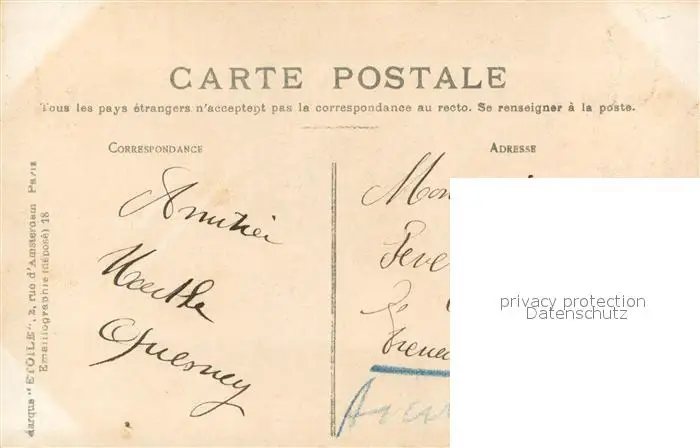 CARTE POSTALE
Tous les pays étrangers n'acceptent pas la correspondance au recto. Se renseigner à la poste.
CORRESPONDANCE
ADRESSE
Marque "ETOILE", 2, rue d'Amsterdam Paris
Emaillographie (déposé) 18
Amitiés
Quesney
Mon
privacy protection
Datenschutz